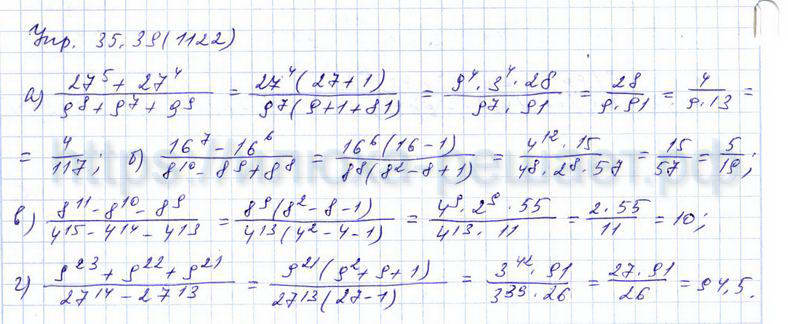 Упр. 35.39(1122)
а) (27⁵ + 27⁴)/(9⁸ + 9⁷ + 9⁹) = (27⁴(27+1))/(9⁷(9+1+81)) = (9⁴·3⁴·28)/(9⁷·91) = 28/(9·91) = 4/(9·13) =
= 4/117; б) (16⁷ − 16⁶)/(8¹⁰ − 8⁹ + 8⁸) = (16⁶(16−1))/(8⁸(8²−8+1)) = (4¹²·15)/(4⁸·2⁸·57) = 15/57 = 5/19;
в) (8¹¹ − 8¹⁰ − 8⁹)/(4¹⁵ − 4¹⁴ − 4¹³) = (8⁹(8²−8−1))/(4¹³(4²−4−1)) = (4⁹·2⁹·55)/(4¹³·11) = (2·55)/11 = 10;
г) (9²³ + 9²² + 9²¹)/(27¹⁴ − 27¹³) = (9²¹(9²+9+1))/(27¹³(27−1)) = (3⁴²·91)/(3³⁹·26) = (27·91)/26 = 94,5.